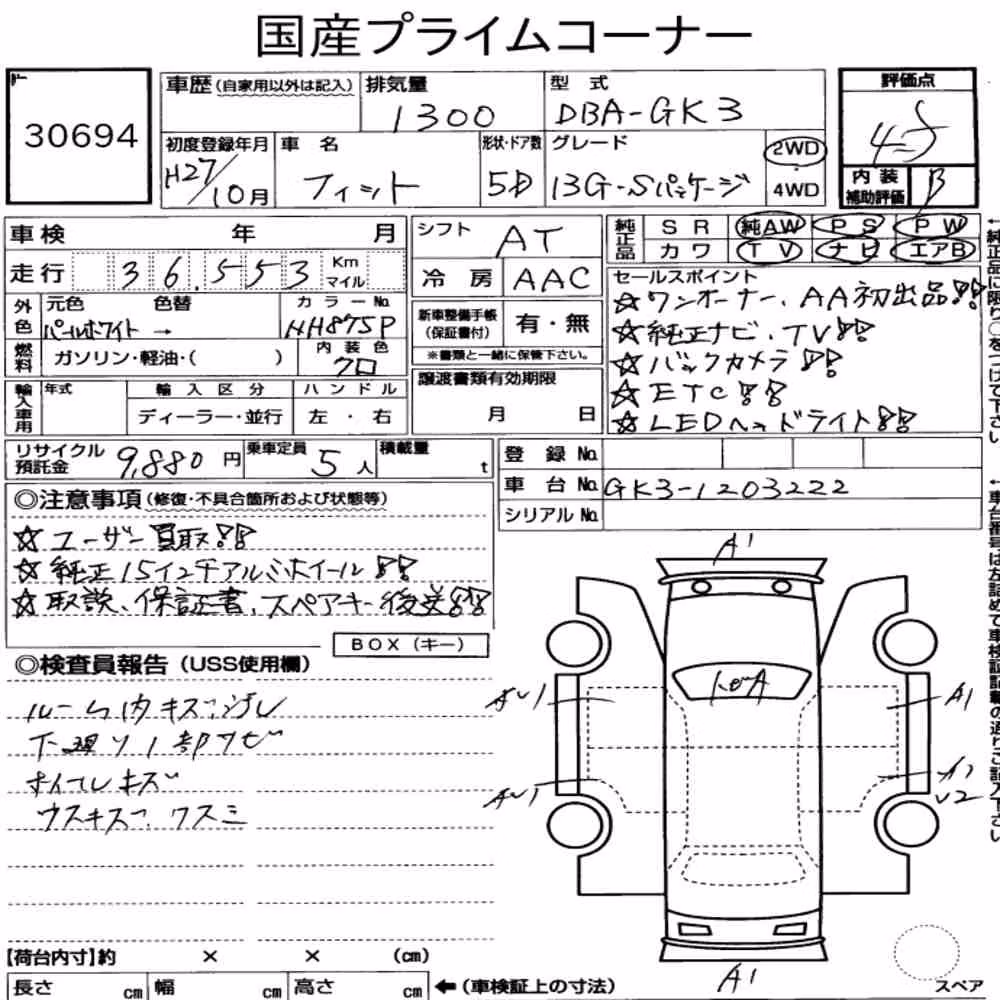 国産プライムコーナー
30694
車歴 (自家用以外は記入)
排気量
1300
型式
DBA-GK3
評価点
4.5
初度登録年月
H27/10月
車名
フィット
形状・ドア数
5D
グレード
13G-Sパッケージ
2WD
4WD
内装補助評価
B
車検 年 月
走行 36,553 Km マイル
外色 元色 色替 カラーNo.
パールホワイト → NH875P
燃料 ガソリン・軽油・( )
内装色
クロ
輸入車用 年式 輸入区分 ハンドル
ディーラー・並行 左・右
シフト AT
冷房 AAC
新車整備手帳(保証書付) 有・無
※書類と一緒に保管下さい。
譲渡書類有効期限
月 日
純正品 SR 純AW PS PW
カワ TV ナビ エアB
セールスポイント
☆ワンオーナー、AA初出品!!
☆純正ナビ、TV!!
☆バックカメラ!!
☆ETC!!
☆LEDヘッドライト!!
←純正品に限り○をつけて下さい
リサイクル預託金 9,880円
乗車定員 5人
積載量 t
登録No.
車台No. GK3-1203222
シリアルNo.
←車台番号は左詰めで車検証記載の通りご記入下さい。
◎注意事項 (修復・不具合箇所および状態等)
☆ユーザー買取!!
☆純正15インチアルミホイール!!
☆取説、保証書、スペアキー後送!!
BOX(キー)
◎検査員報告 (USS使用欄)
ルーム内キズ、汚レ
下廻り1部サビ
ホイールキズ
ウスキズ、クスミ
A1
A1
A1
U2
A1
スペア
【荷台内寸】約 × × (cm)
長さ cm 幅 cm 高さ cm ←(車検証上の寸法)